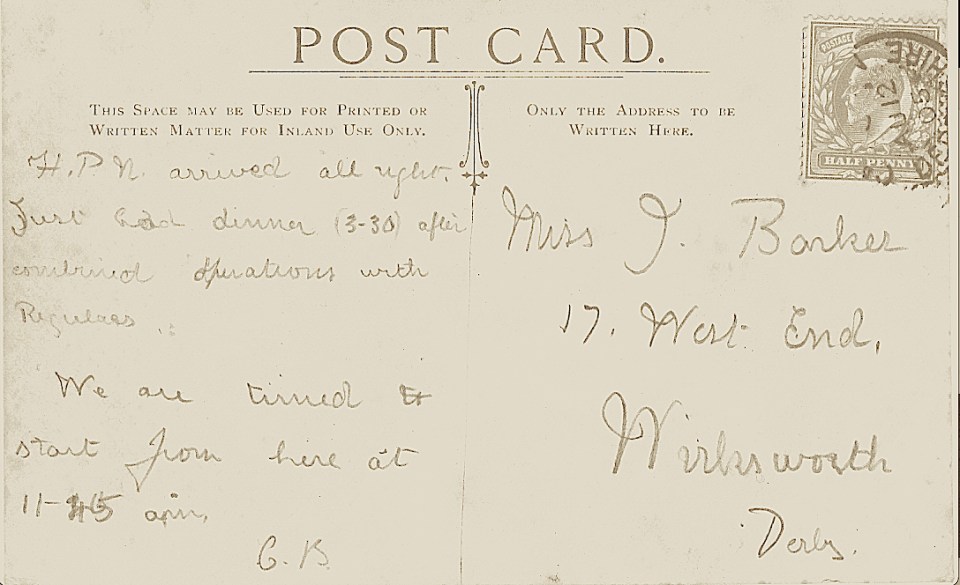 POST CARD.
THIS SPACE MAY BE USED FOR PRINTED OR
WRITTEN MATTER FOR INLAND USE ONLY.
ONLY THE ADDRESS TO BE
WRITTEN HERE.
POSTAGE
HALF PENNY
H.P.N. arrived all right.
Just had dinner (3-30) after
combined operations with
Regulars.
We are timed to
start from here at
11-45 am.
G.B.
Miss J. Barker
17. West End,
Wirksworth
Derby.